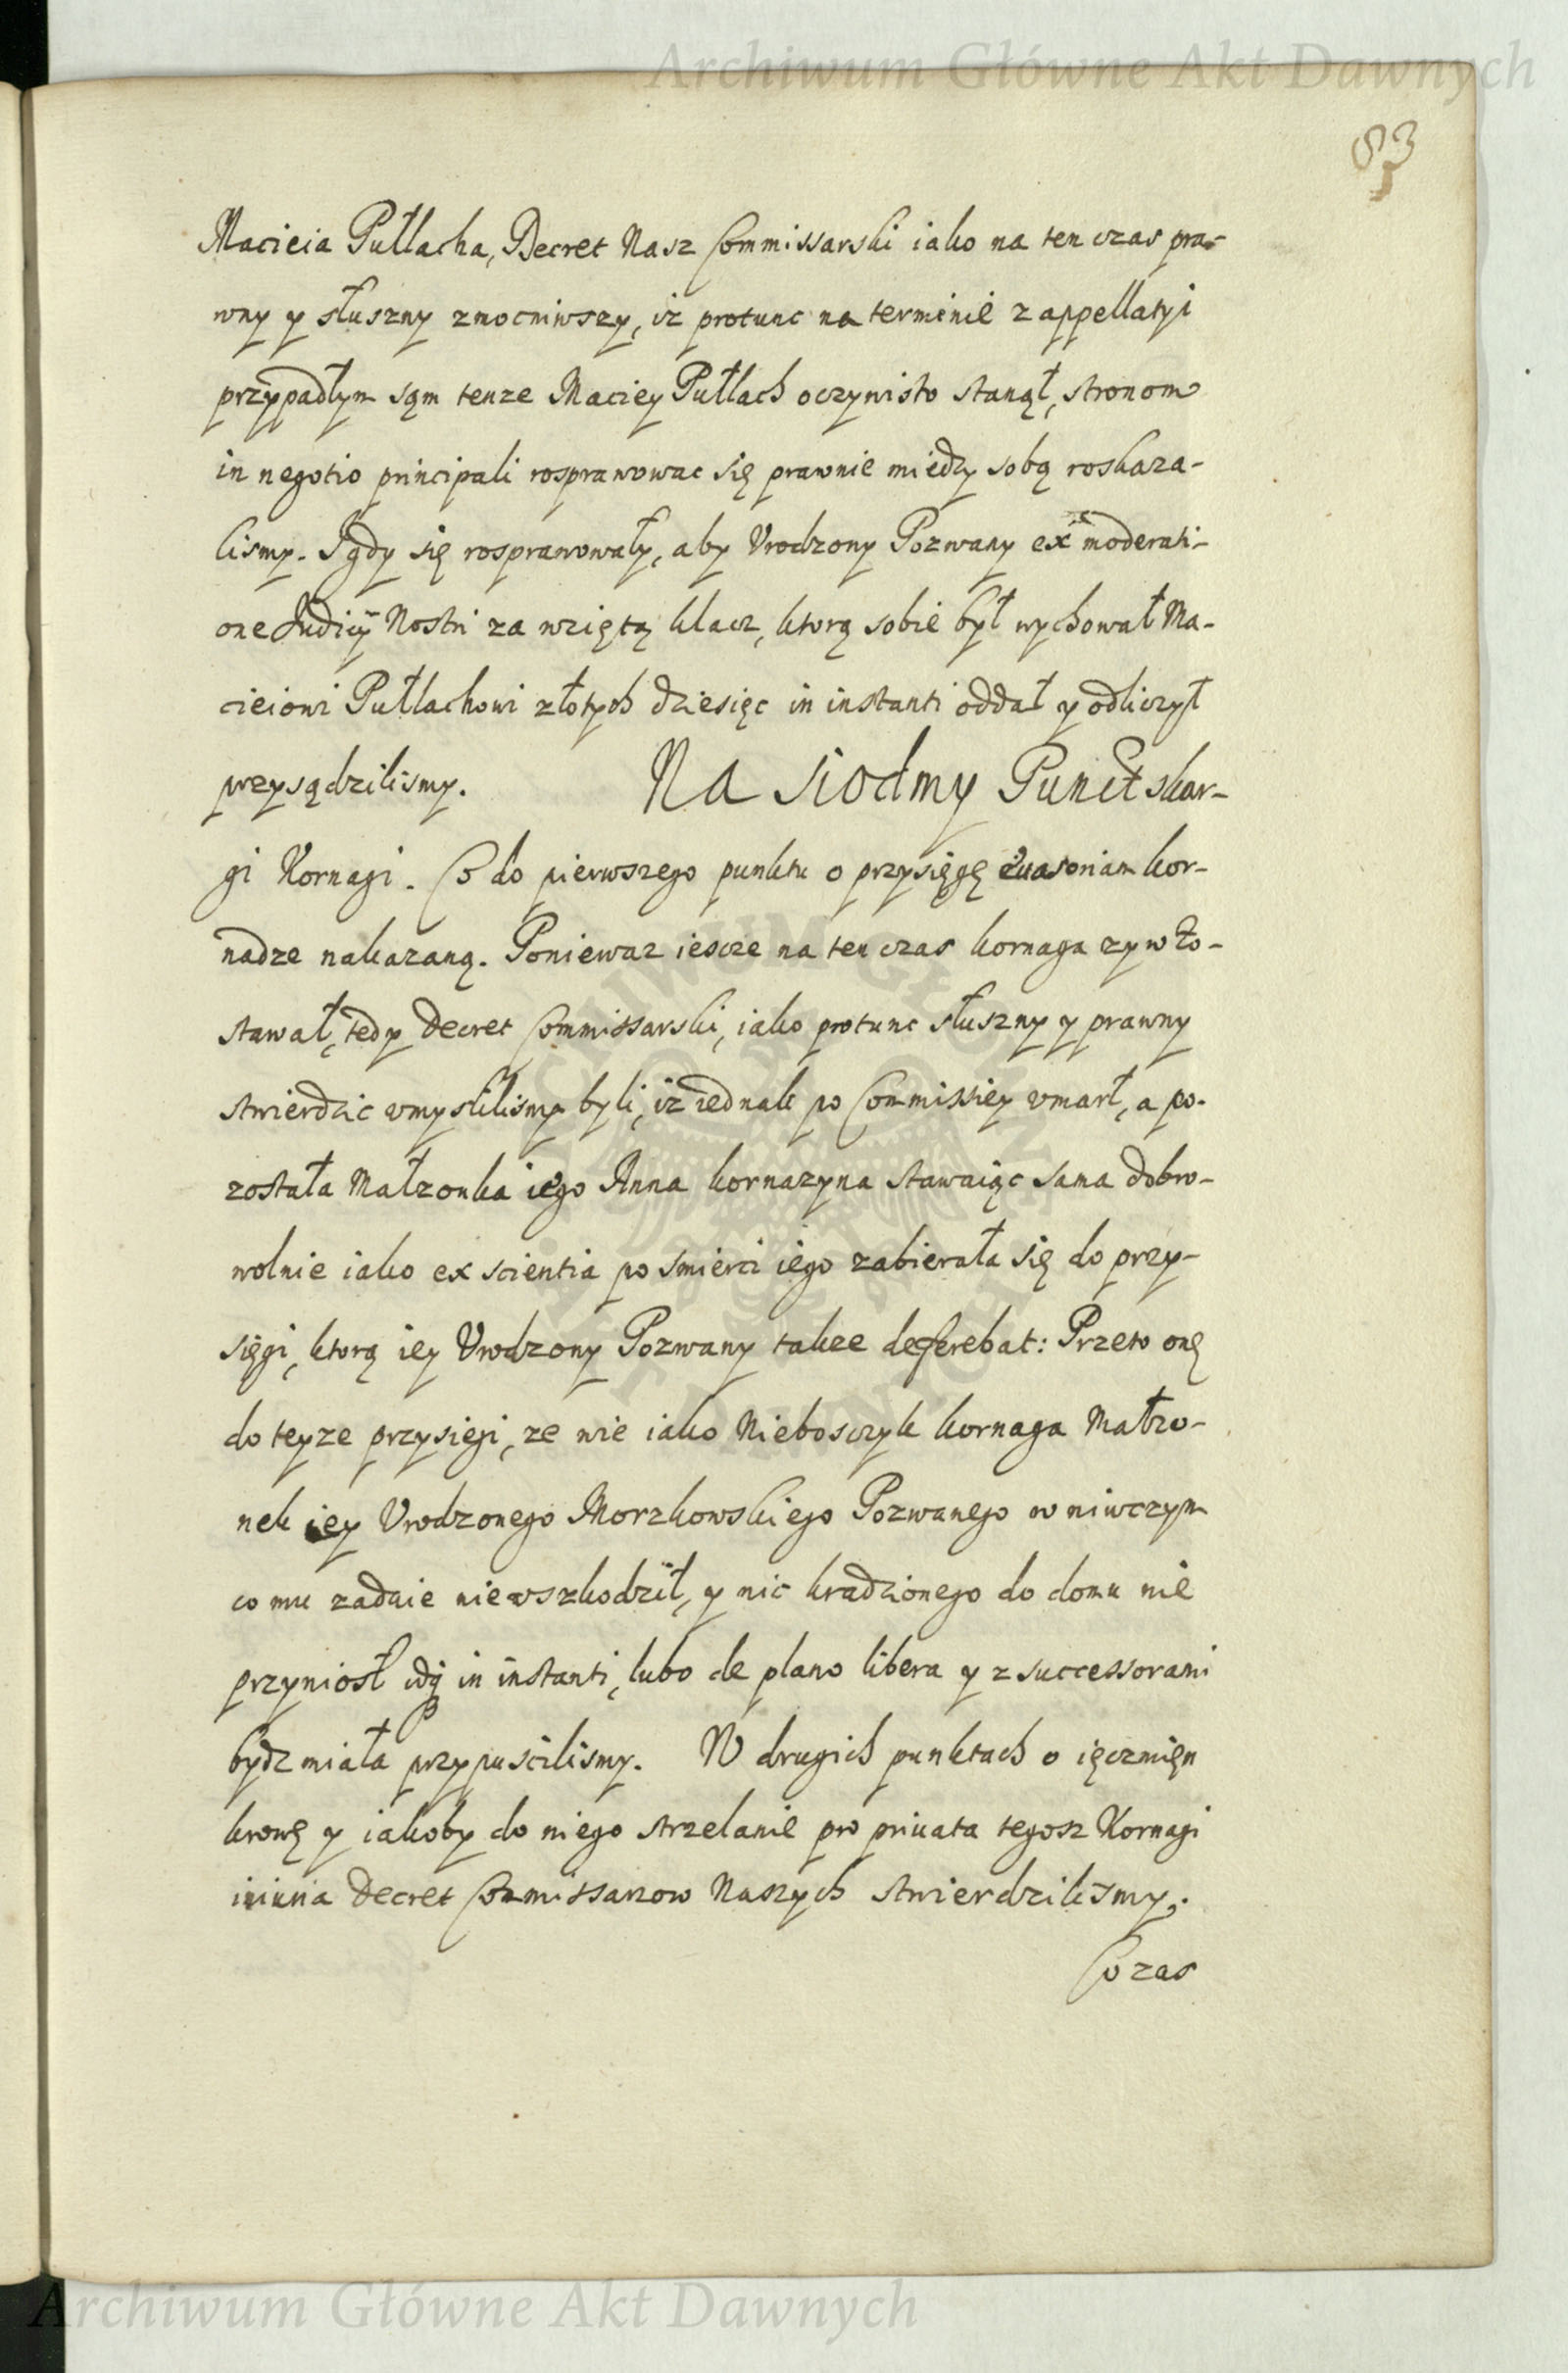 Archiwum Główne Akt Dawnych
83
Macieia Pułlacha, Decret Nasz Commissarski iako na ten czas pra-
wny y słuszny zmocniwszy, iz protunc na terminie z appellatyi
przypadłym sąm tenze Maciey Pułlach oczywisto stanął, stronom
in negotio principali rosprawowac się prawnie miedzy sobą roskaza-
lismy. I gdy się rosprawowały, aby Vrodzony Pozwany ex moderati-
one Judicij Nostri za wziętą klacz, ktorą sobie był wychował Ma-
cieiowi Pułlachowi złotych dziesięc in instanti oddał y odliczył
przysądzilismy. Na siodmy Punct skar-
gi Kornagi. Co do pierwszego punktu o przysięgę euasoriam kor-
nadze nakazaną. Poniewaz iescze na ten czas kornaga zyw zo-
stawał, tedy Decret Commissarski, iako protunc słuszny y prawny
stwierdzic vmyslilismy byli, iz iednak po Commissiey vmarł, a po-
została Małzonka iego Anna kornazyna stawaiąc sama dobro-
wolnie iako ex scientia po smierci iego zabierała się do przy-
sięgi, ktorą iey Vrodzony Pozwany takze deferebat: Przeto onę
do teyze przysiegi, ze wie iako Nieboszczyk kornaga Małzo-
nek iey Vrodzonego Morzkowskiego Pozwanego w niwczym
co mu zadaie nie vszkodził, y nic kradzionego do domu nie
przyniosł idą in instanti, lubo de plano libera y z successorami
bydz miała przypuscilismy. W drugich punktach o ięczmięn
krowę y iakoby do niego strzelanie pro priuata tegosz Kornagi
iniuria Decret Commissarzow Naszych stwierdzilismy.
Co zas
Archiwum Główne Akt Dawnych